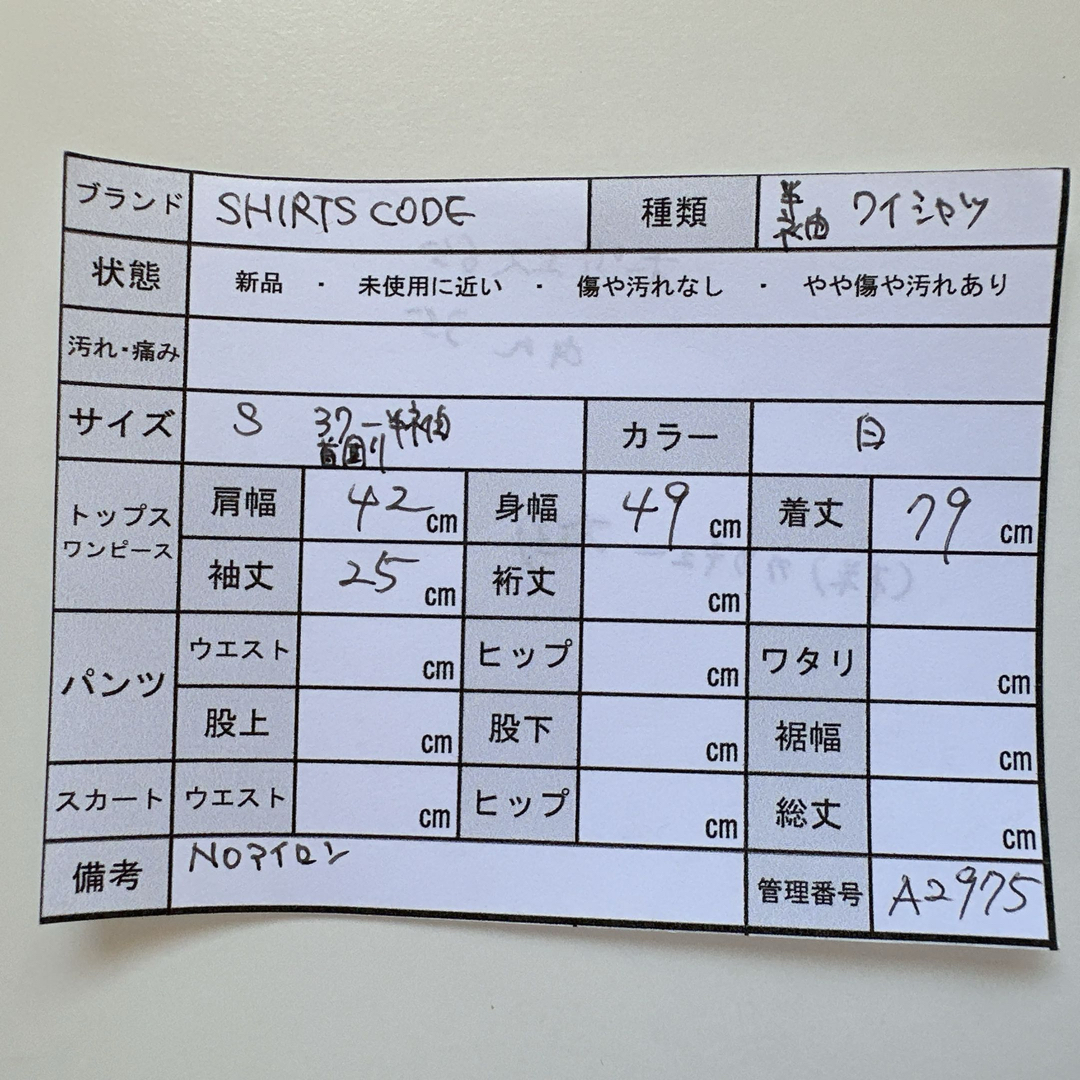 ブランド SHIRTS CODE 種類 半袖 ワイシャツ
状態 新品 ・ 未使用に近い ・ 傷や汚れなし ・ やや傷や汚れあり
汚れ・痛み
サイズ S 37-半袖 カラー 白
首回り
トップス ワンピース 肩幅 42cm 身幅 49cm 着丈 79cm
袖丈 25cm 裄丈 cm
パンツ ウエスト cm ヒップ cm ワタリ cm
股上 cm 股下 cm 裾幅 cm
スカート ウエスト cm ヒップ cm 総丈 cm
備考 NOアイロン 管理番号 A2975